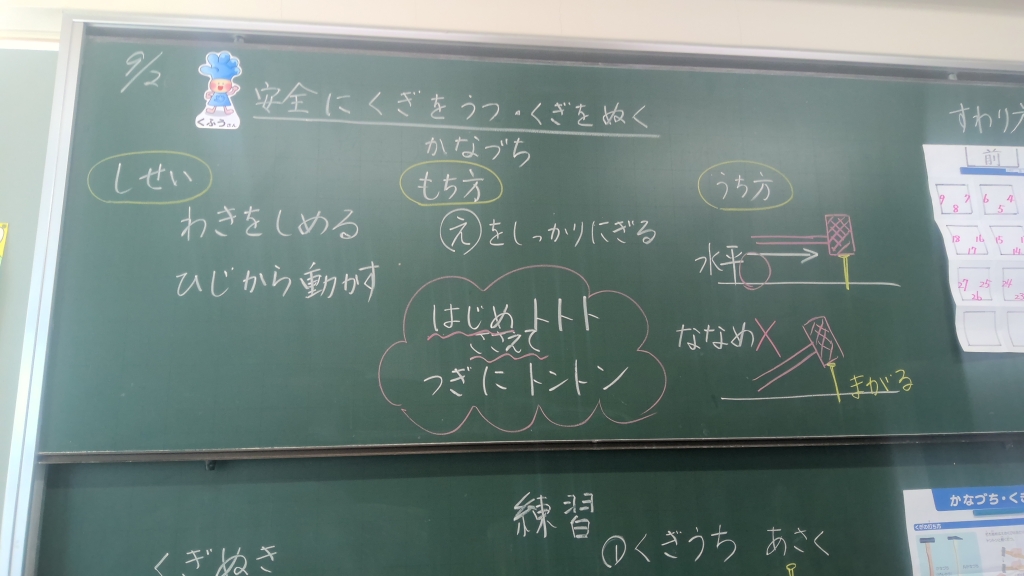 9/2
くふうくん
安全にくぎをうつ・くぎをぬく
かなづち
しせい
わきをしめる
ひじから動かす
もち方
えをしっかりにぎる
はじめ トトト
ささえて
つぎに トントン
うち方
水平
ななめ×
まがる
すわり方
前
練習
①くぎうち あさく
くぎぬき
かなづち・くぎ